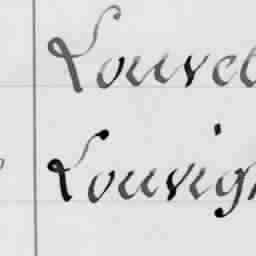 Louvel
Louvign